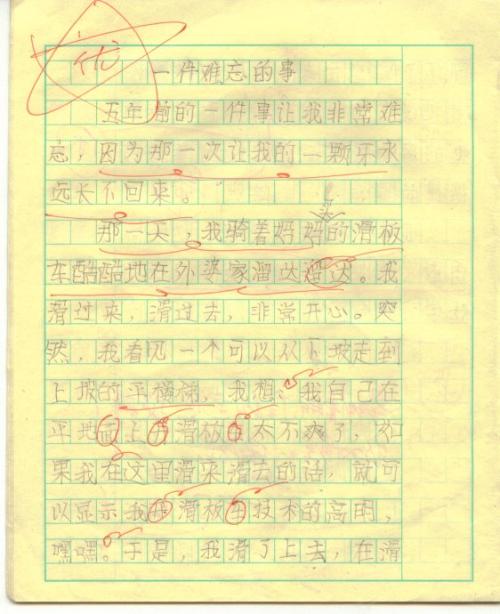 优
一件难忘的事
五年前的一件事让我非常难
忘，因为那一次让我的一颗牙永
远长不回来。
那一天，我骑着妤妤的滑板
车酷酷地在外婆家溜达溜达。我
滑过来，滑过去，非常开心。突
然，我看见一个可以从下坡走到
上坡的平横梯，我想：我自己在
平地面上 滑板 太不爽了，如
果我在这里滑来滑去的话，就可
以显示我 滑板 技术的高明，
嘿嘿。于是，我滑了上去，在滑